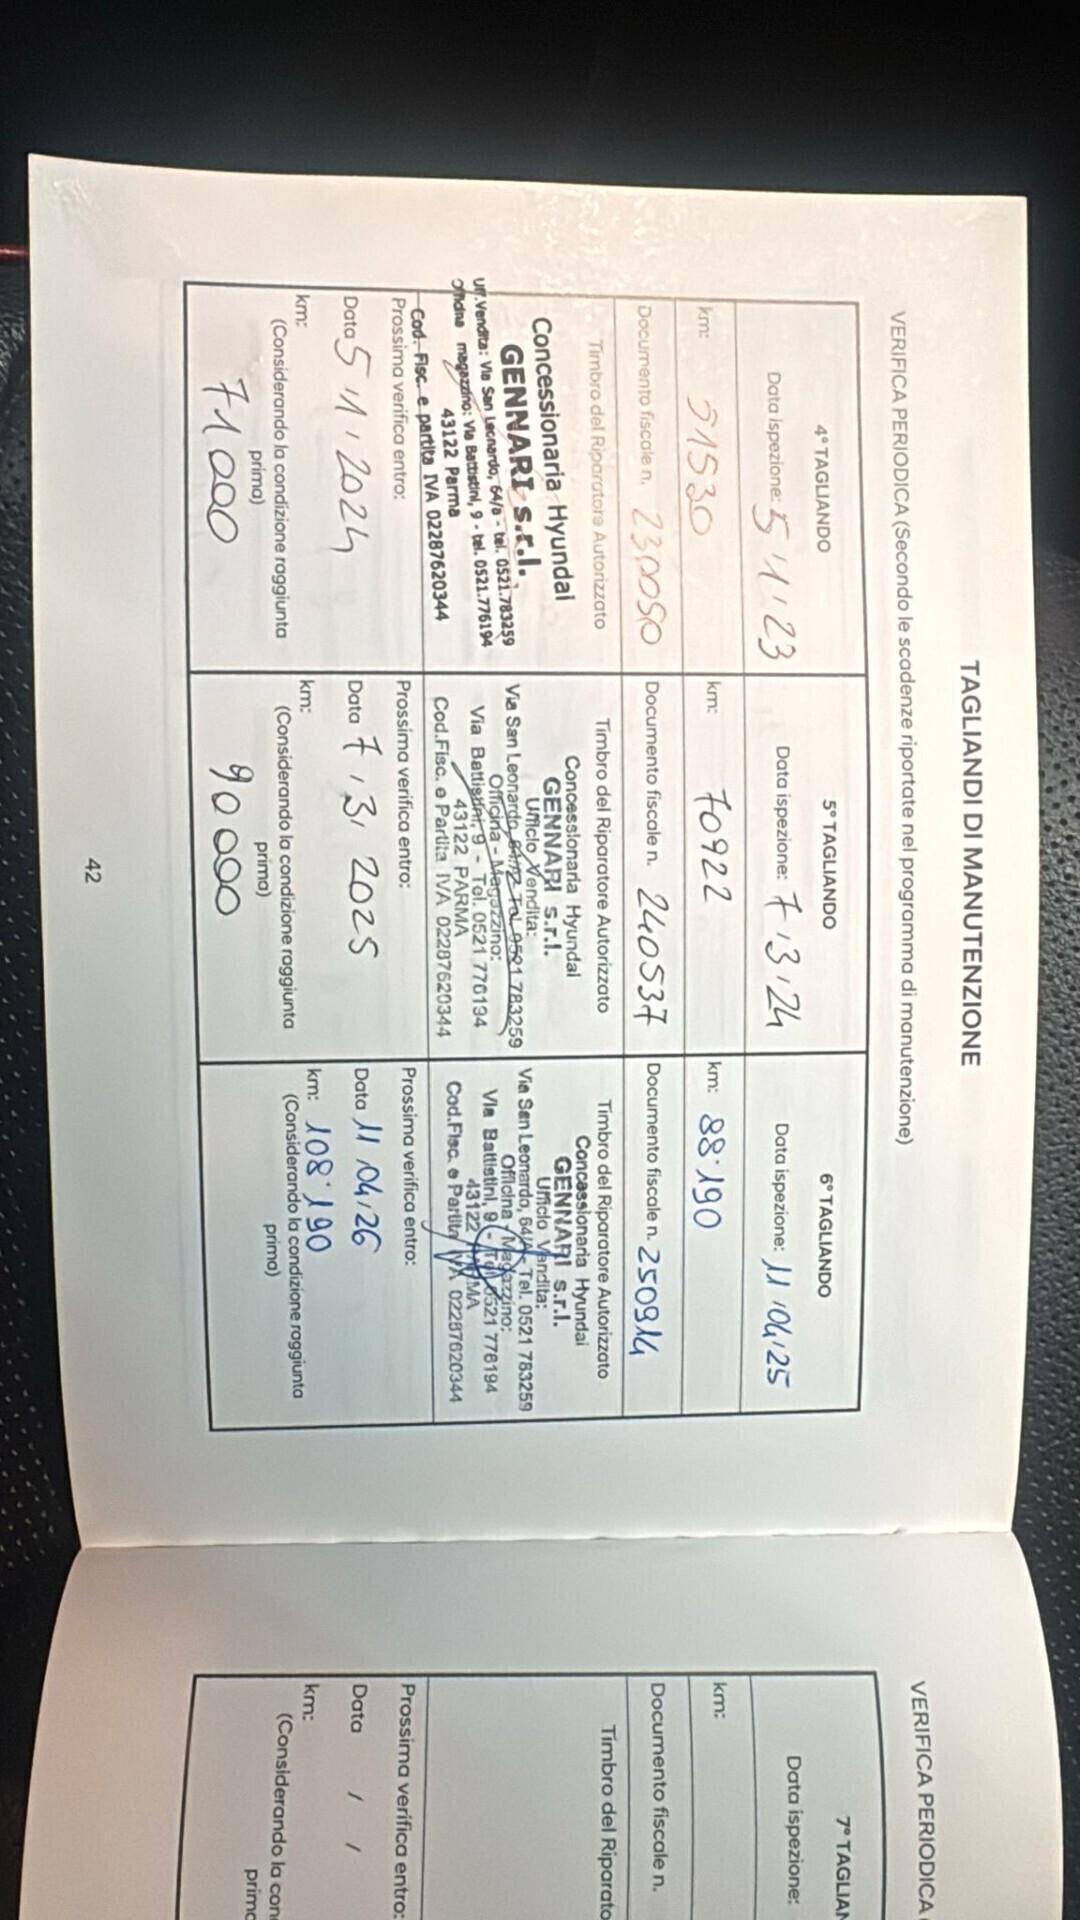 TAGLIANDI DI MANUTENZIONE
VERIFICA PERIODICA (Secondo le scadenze riportate nel programma di manutenzione)
4° TAGLIANDO
Data ispezione: 5/1/23
km: 51530
Documento fiscale n. 230050
Timbro del Riparatore Autorizzato
Concessionaria Hyundai
GENNARI s.r.l.
Uff.Vendita: Via San Leonardo, 64/a - tel. 0521.783259
Officina magazzino: Via Battistini, 9 - tel. 0521.776194
43122 Parma
Cod. Fisc. e partita IVA 02287620344
Prossima verifica entro:
Data 5/1/2024
km:
(Considerando la condizione raggiunta
prima)
71000
5° TAGLIANDO
Data ispezione: 7/3/24
km: 70922
Documento fiscale n. 240537
Timbro del Riparatore Autorizzato
Concessionaria Hyundai
GENNARI s.r.l.
Ufficio Vendita:
Via San Leonardo, Tel. 0521 783259
Officina - Magazzino:
Via Battistini, 9 - Tel. 0521 776194
43122 PARMA
Cod.Fisc. e Partita IVA 02287620344
Prossima verifica entro:
Data 7/3/2025
km:
(Considerando la condizione raggiunta
prima)
90000
6° TAGLIANDO
Data ispezione: 11/04/25
km: 88.190
Documento fiscale n. 250914
Timbro del Riparatore Autorizzato
Concessionaria Hyundai
GENNARI s.r.l.
Ufficio Vendita:
Via San Leonardo, 64/A - Tel. 0521 783259
Officina - Magazzino:
Via Battistini, 9 - Tel. 0521 776194
43122 PARMA
Cod.Fisc. e Partita IVA 02287620344
Prossima verifica entro:
Data 11/04/26
km: 108.190
(Considerando la condizione raggiunta
prima)
42
VERIFICA PERIODICA
7° TAGLIAN
Data ispezione:
km:
Documento fiscale n.
Timbro del Riparato
Prossima verifica entro:
Data / /
km:
(Considerando la con
prima